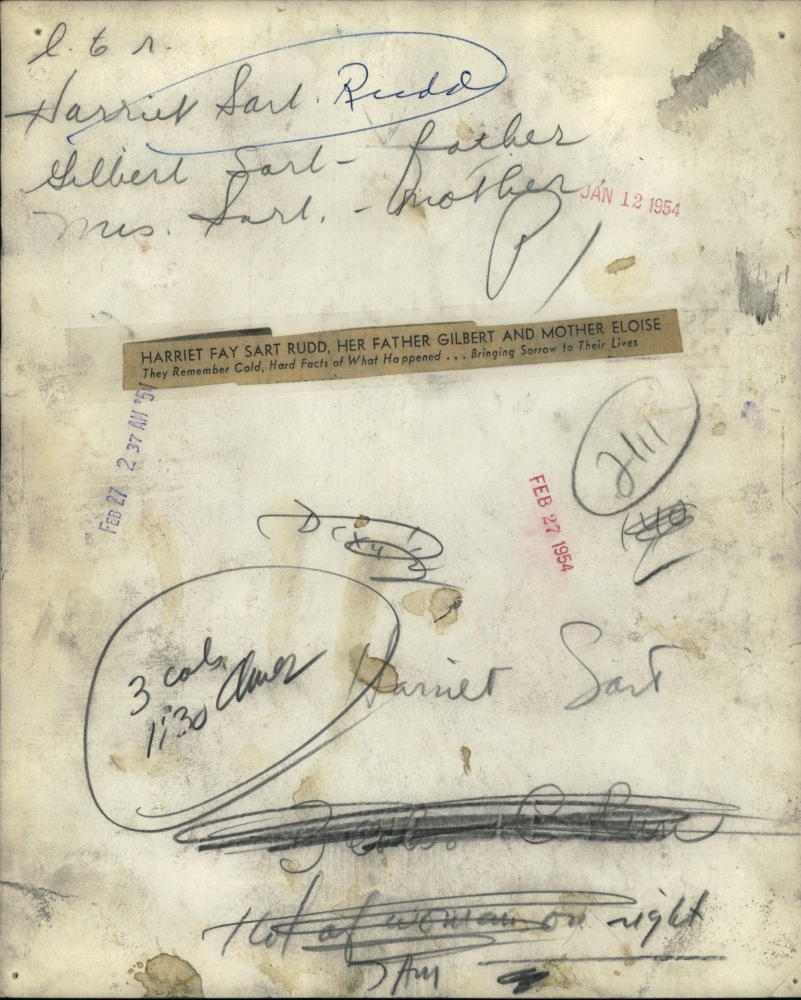 l. to r.
Harriet Sart. Rudd
Gilbert Sart - father
Mrs. Sart. - mother
JAN 12 1954
HARRIET FAY SART RUDD, HER FATHER GILBERT AND MOTHER ELOISE
They Remember Cold, Hard Facts of What Happened . . . Bringing Sorrow to Their Lives
FEB 27 2 37 AM '54
FEB 27 1954
3 cols
1:30
Harriet Sart
of woman on right
7 AM